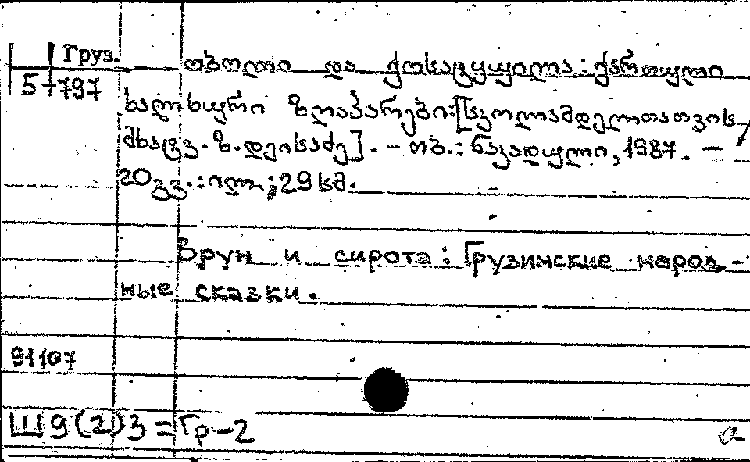 Груз.
5-797
ობოლი და ქოსატყუილა : ქართული
ხალხური ზღაპარები : [სკოლამდელთათვის /
მხატვ. ზ. დეისაძე]. – თბ. : ნაკადული, 1987. –
20 გვ. : ილ. ; 29 სმ.
Врун и сирота : Грузинские народ-
ные сказки.
91107
Ш9(2)3=Гр-2
а